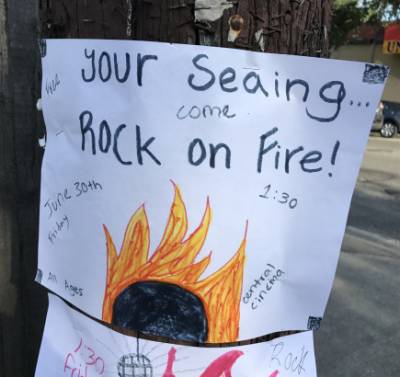 your Seaing...
come
ROCK on Fire!
June 30th
Friday
1:30
All Ages
central
cinema
1:30
Fri
Rock